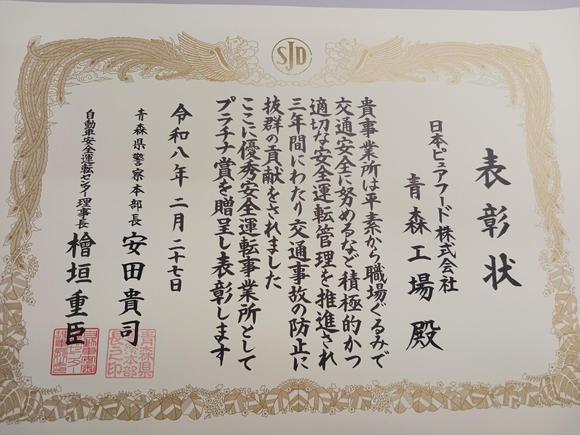 SJD
表彰状
日本ピュアフード株式会社
青森工場殿
貴事業所は平素から職場ぐるみで
交通安全に努めるなど積極的かつ
適切な安全運転管理を推進され
三年間にわたり交通事故の防止に
抜群の貢献をされました
ここに優秀安全運転事業所として
プラチナ賞を贈呈し表彰します
令和八年二月二十七日
青森県警察本部長 安田貴司
自動車安全運転センター理事長 檜垣重臣
青森県
警察本部
長之印